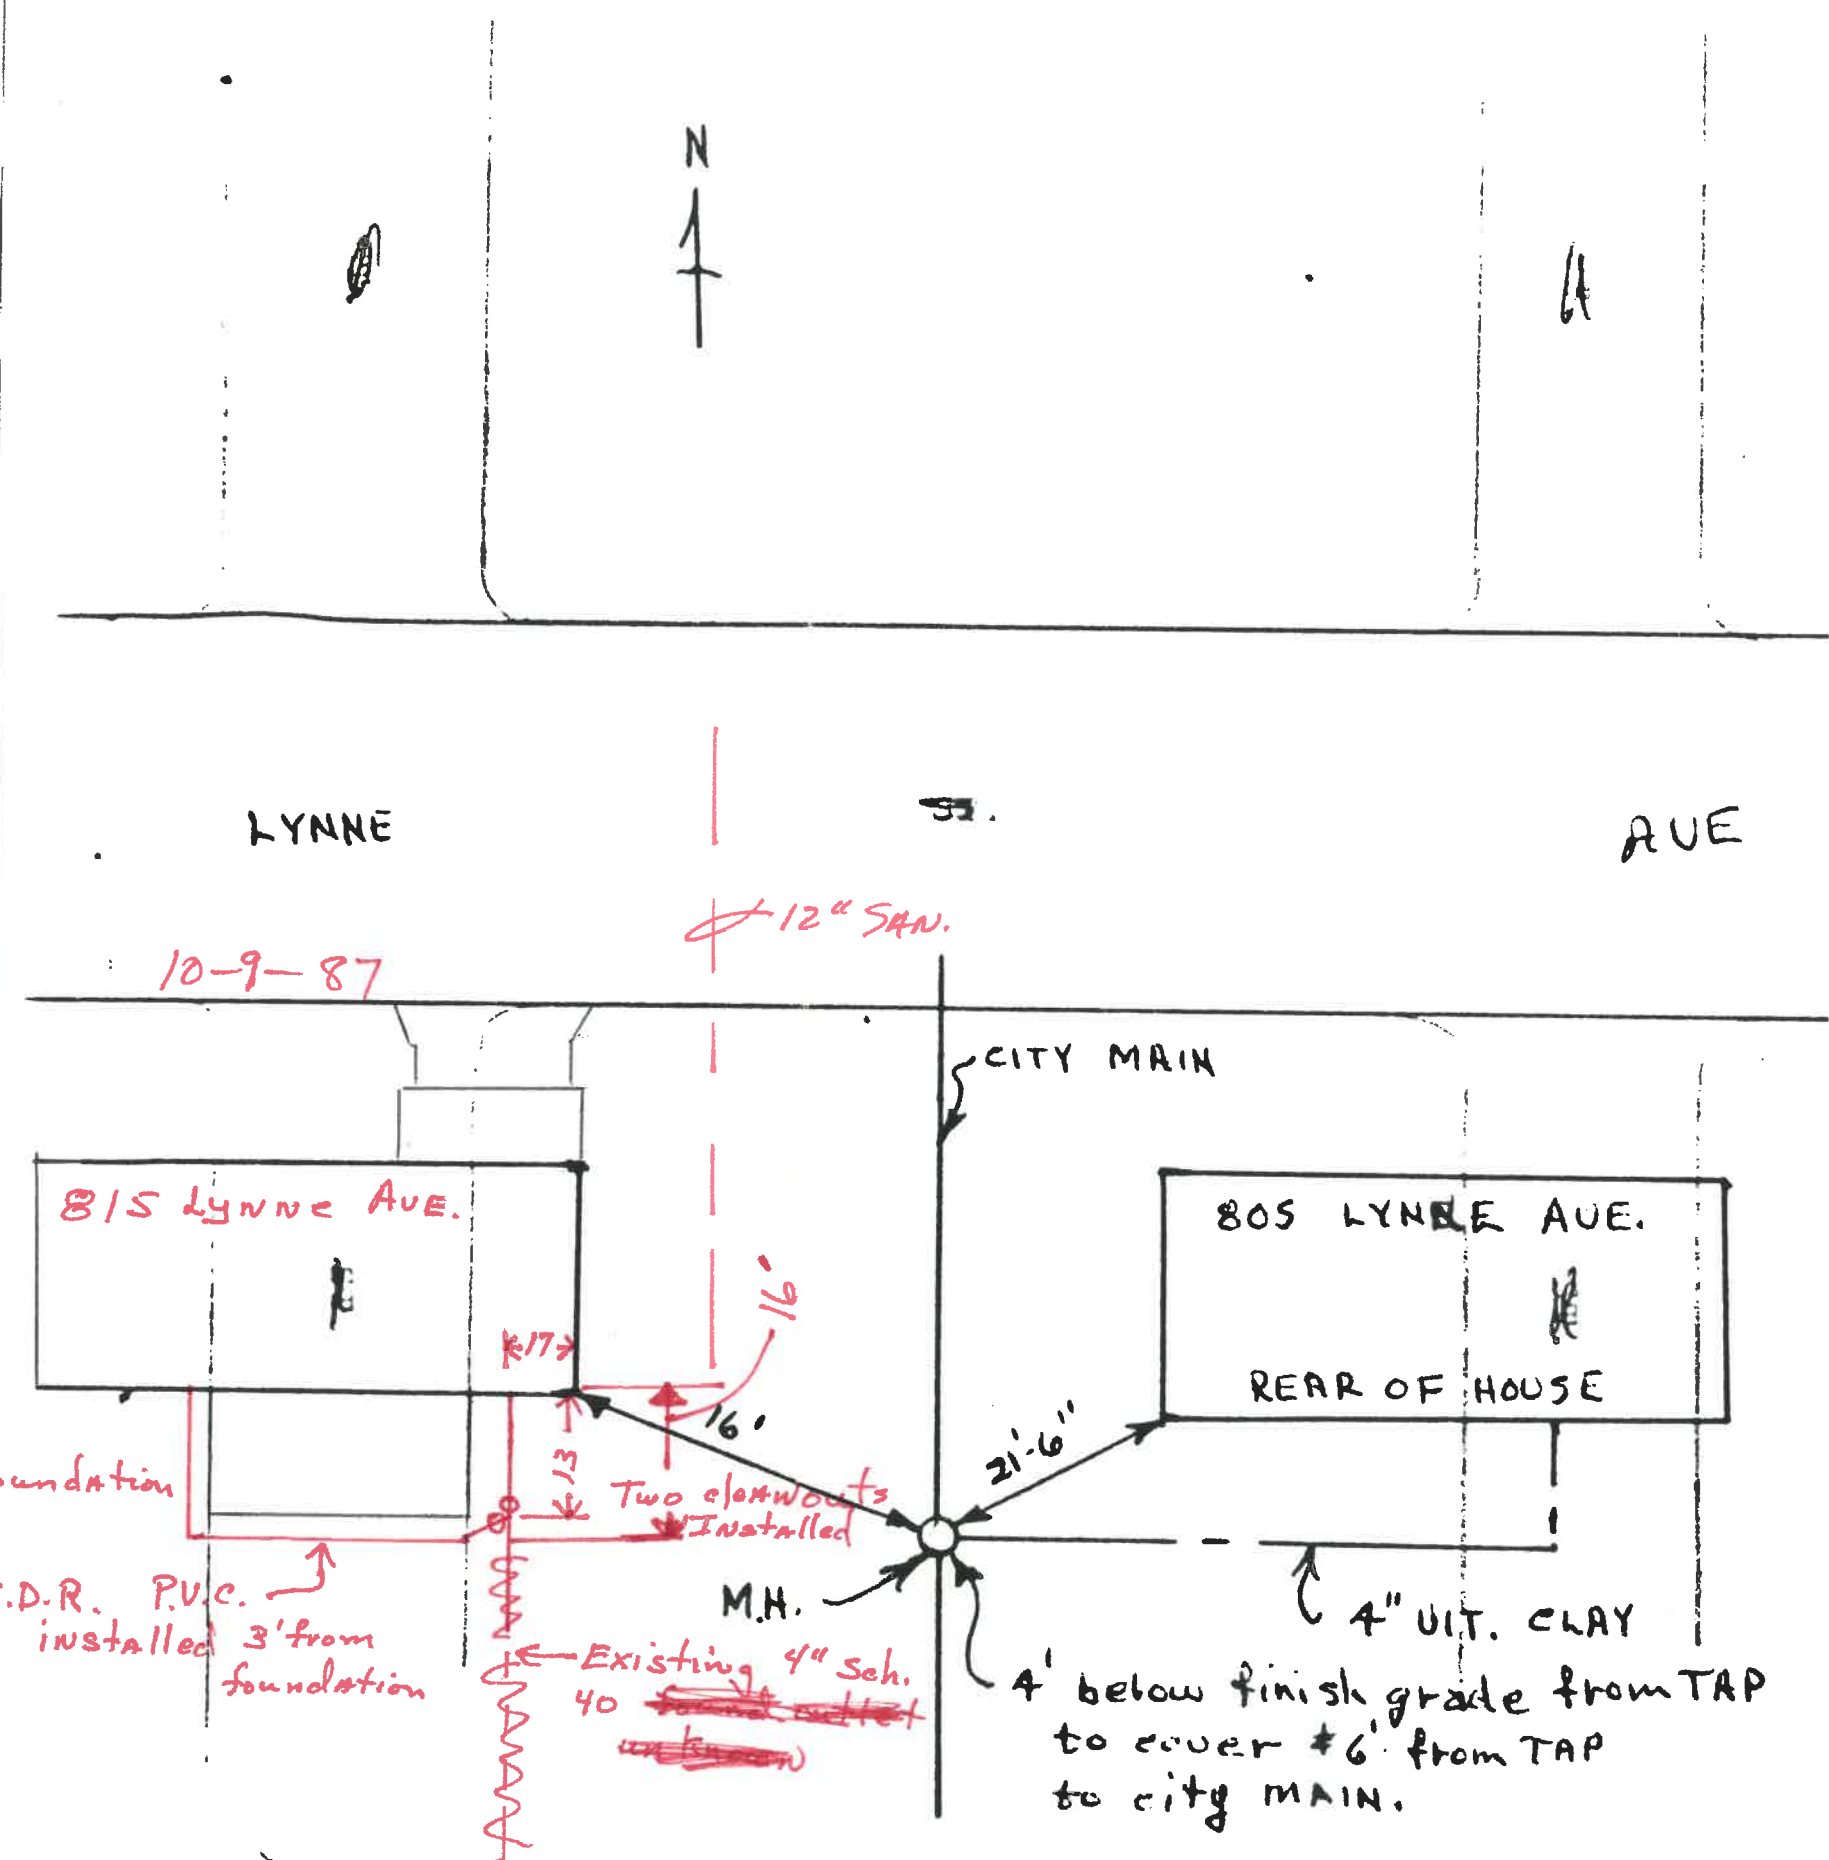 N
LYNNE
AVE
12" SAN.
10-9-87
CITY MAIN
815 Lynne AVE.
805 LYNNE AVE.
16'
17
REAR OF HOUSE
16'
21'-6"
13
oundation
Two cleanouts
Installed
.D.R. P.V.C.
installed 3' from
foundation
M.H.
4" VIT. CLAY
Existing 4" Sch.
40
4' below finish grade from TAP
to cover 6' from TAP
to city MAIN.